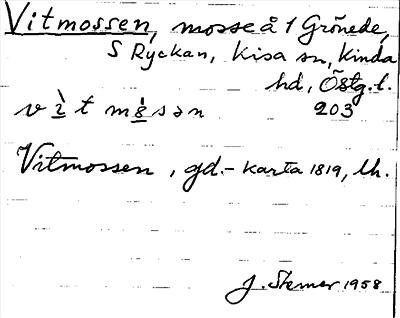 Vitmossen, mosse å 1 Grönede,
S Ryckan, Kisa sn, Kinda
hd, Östg. l.
203
v ì t m ò s ə n
Vitmossen, gd.- karta 1819, lh.
J. Stemer 1958